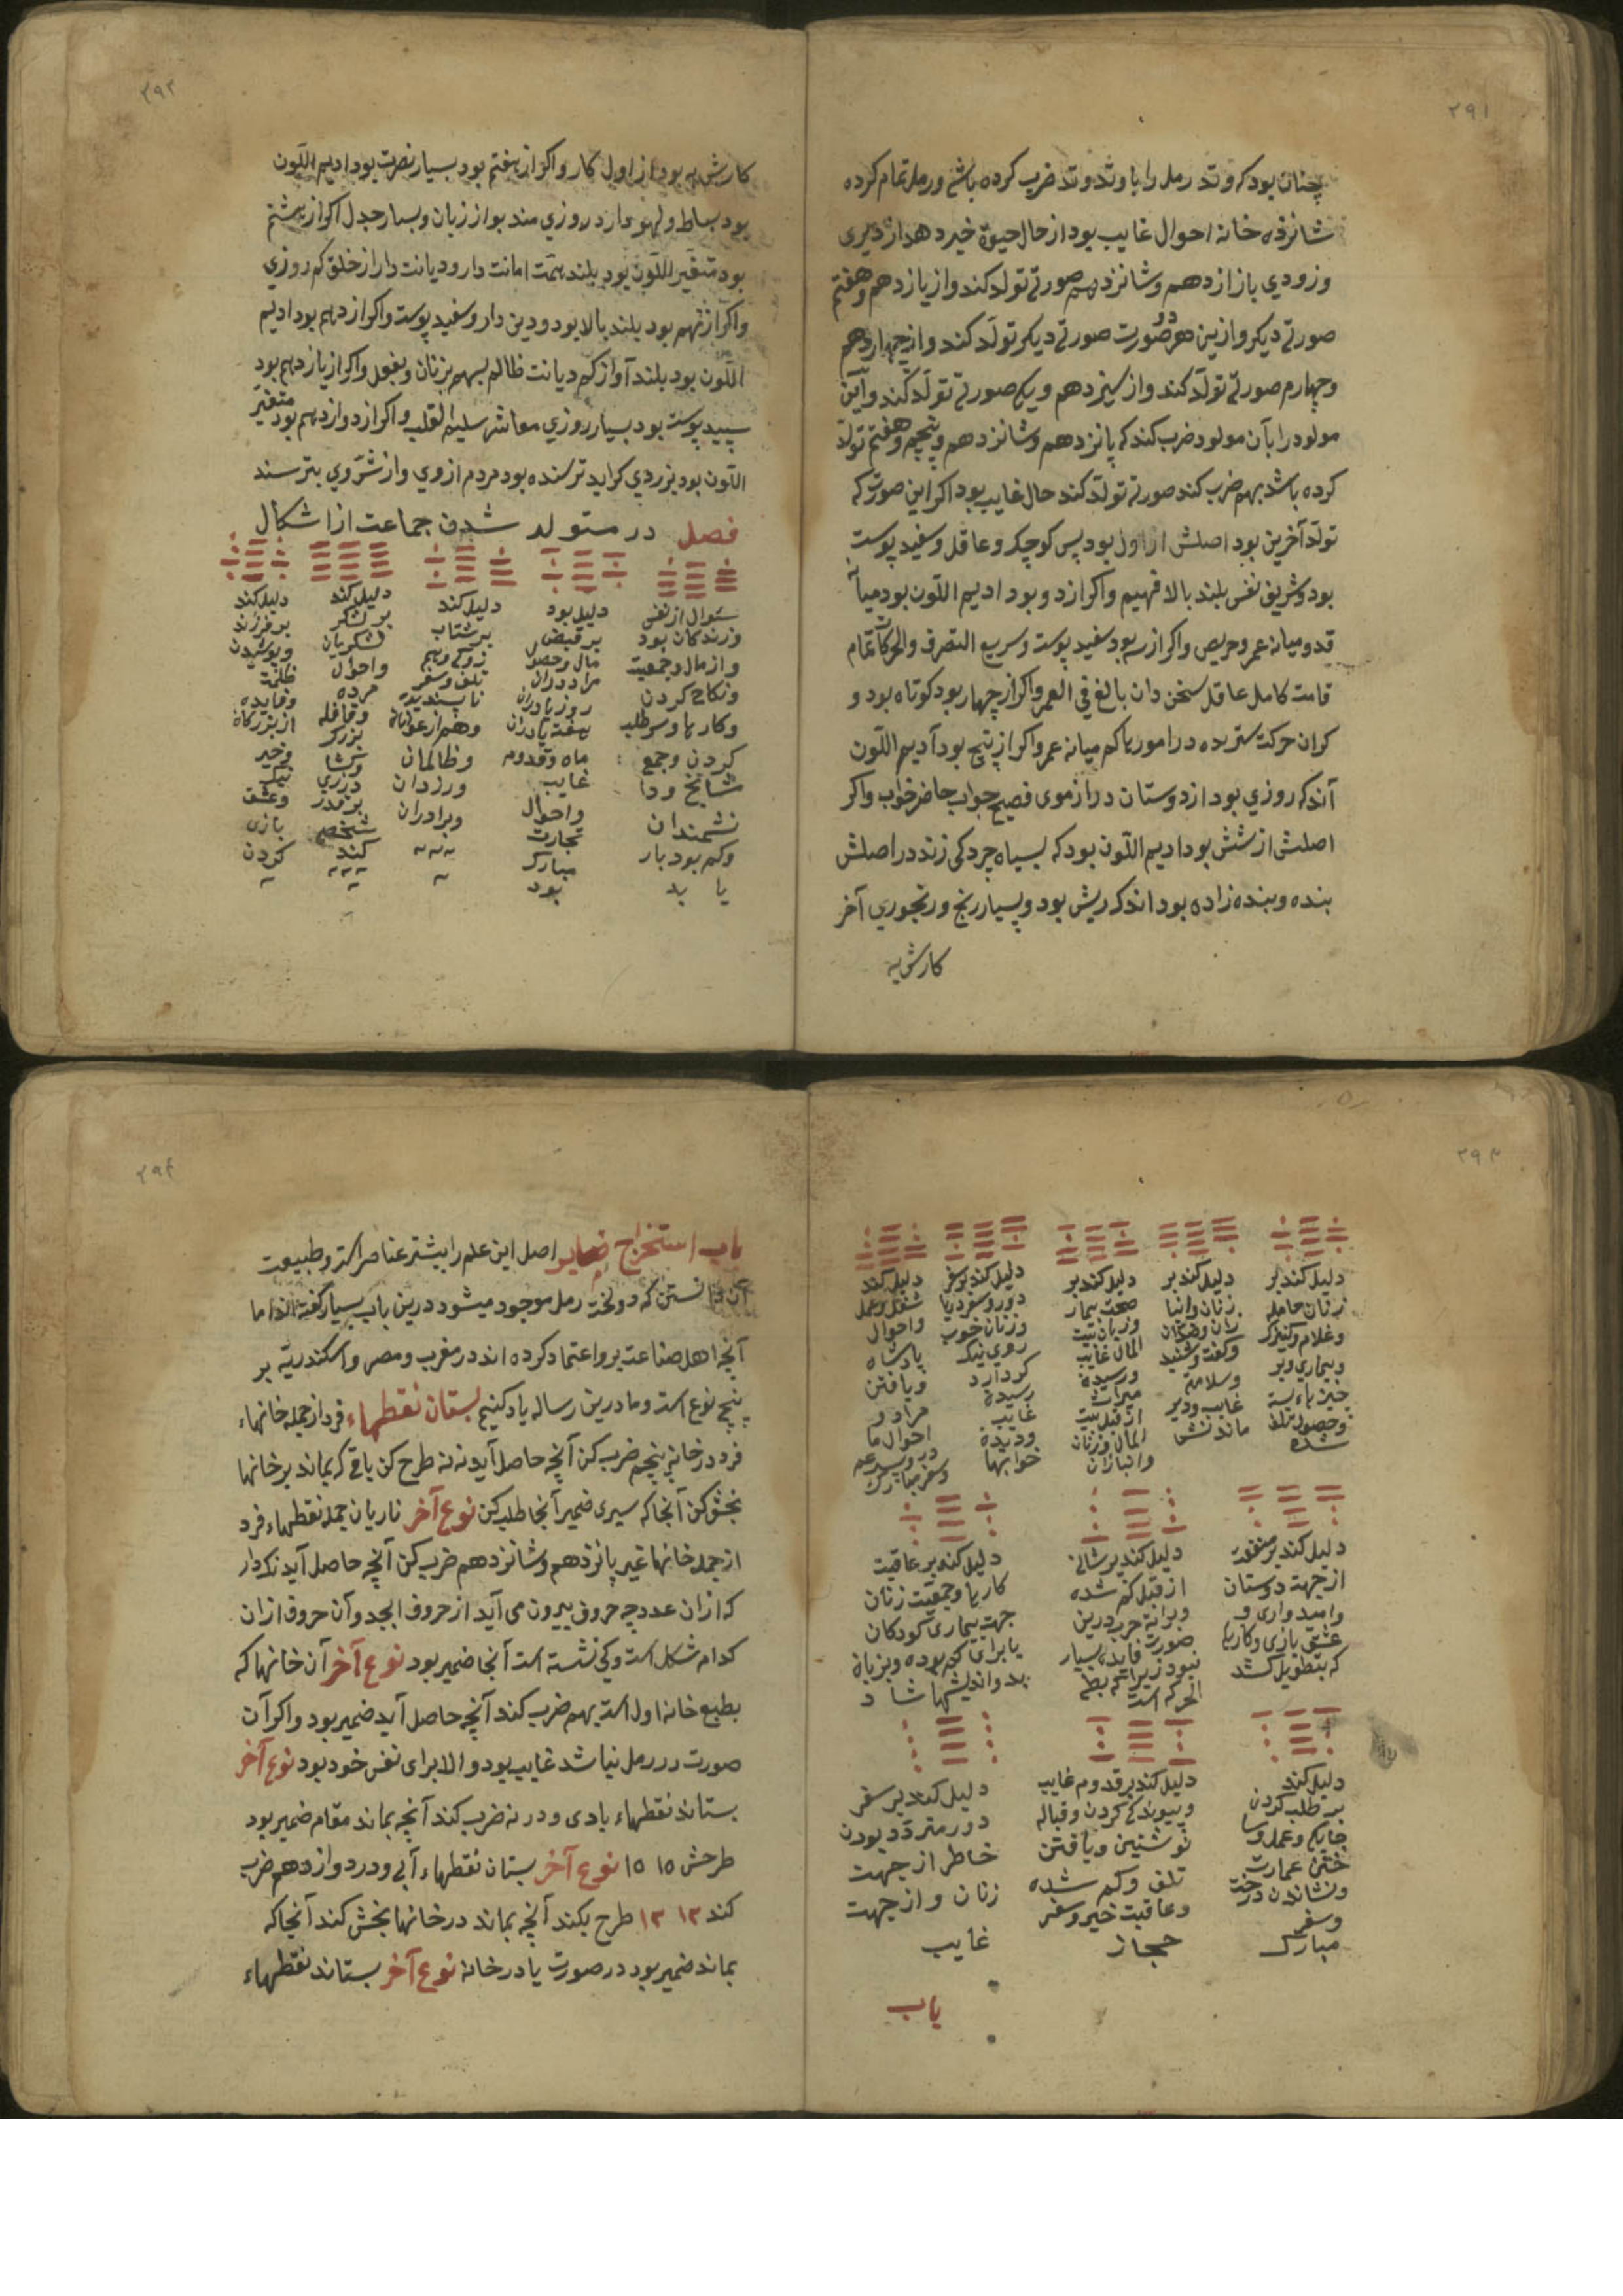 ۲۹۱
چنان بود که وتد رمل را با وتد وتد ضرب کرده باشم و رمل تمام کرده
شانزده خانه احوال غایب بود از حال حیوة خبر دهد از دیری
و زودی باز از دهم و شانزدهم صورتی تولد کند و از یازدهم و هفتم
صورتی دیگر و ازین هر دو صورت صورتی دیگر تولد کند و از چهاردهم
و چهارم صورتی تولد کند و از سیزدهم و یکم صورتی تولد کند و این
مولود را بآن مولود ضرب کند که پانزدهم و شانزدهم و پنجم و هفتم تولد
کرده باشد بهم ضرب کند صورتی تولد کند حال غایب بود اکر این صورت که
تولد آخرین بود اصلش از اول بود پس کوچک و عاقل و سفید پوست
بود و شریف نفس بلند بالا فهیم و اکر از دو بود ادیم اللون بود میانه
قد و میانه عمر و حریص و اکر از سه بود سفید پوست و سریع التصرف و الحرکات تمام
قامت کامل عاقل سخن دان بالغ فی العمر و اکر از چهار بود کوتاه بود و
کران حرکت ستربده در امورها کم میانه عمر و اکر از پنج بود آدیم اللون
اندک روزی بود از دوستان دراز موی فصیح جواب حاضر خواب و اکر
اصلش از شش بود ادیم اللون بود که بسیاه چردکی زند در اصلش
بنده و بنده زاده بود اندک ریش بود و بسیار رنج و رنجوری آخر
کارش به
۲۹۲
کارش به بود از اول کار و اکر از هفتم بود بسیار نصرت بود ادیم اللون
بود بساط و لهو دارد روزی مند بود از زبان و بسیار جدل اکر از هشتم
بود متغیر اللون بود بلند همت امانت دار و دیانت دار از خلق کم روزی
و اکر از نهم بود بلند بالا بود و دین دار و سفید پوست و اکر از دهم بود ادیم
اللون بود بلند آواز کم دیانت ظالم بهم بزنان و بفعل و اکر از یازدهم بود
سپید پوست بود بسیار روزی معاشر سلیم القلب و اکر از دوازدهم بود متغیر
اللون بود بزردی کراید ترسنده بود مردم از وی و از شر وی بترسند
فصل در متولد شدن جماعت از اشکال
سوال از نفس
فرزندکان بود
و از مال و جمعیت
و نکاح کردن
و کارها و سر طلب
کردن و جمع
شایخ و دا
نشمندان
و کم بود بار
یا بد
دلیل بود
بر قبض
مال و حصول
مراد دوران
روز بادران
هفته یادران
ماه و قدوم
غایب
و احوال
تجارت
مبارک
بود
دلیل کند
بر شتاب
زوکی و بیم
تلف و سفر
ناپسندیده
و هم از عوانان
و ظالمان
و رزدان
و برادران
دلیل کند
بر لشکر
لشکریان
و احوال
مرده
و قافله
بزرک
شخصی
کند
دلیل کند
بر فرزند
و پوشیدن
و فایده
از بزرکان
و خیر
نیک
و عشق
بازی
کردن
۲۹۳
دلیل کند بر
زنان حامله
و غلام و کنیزک
و بیماری و بر
چیزهاء بسته
و حصول تلف
شده
دلیل کند بر
زنان و انبا
و کفت و شنید
و سلامة
غایب و دیر
ماندنش
دلیل کند بر
صحت بیمار
و زیان بیت
المال غایب
و رسیدن
میراث
از قبل بیت
المال و زنان
و انبازان
دلیل کند بر سفر
دور و سفر دریا
و زنان خوب
روی نیک
کردار
رسیدن
غایب
و دیدن
خوابها
دلیل کند
شغل و عمل
و احوال
پادشاه
و یافتن
مراد و
احوال ما
در و پدر
و سفر مبارک
دلیل کند بر منفعت
از جهت دوستان
و امیدواری و
عشق بازی و کارها
که بتطویل کشد
دلیل کند بر شانی
از قبل کم شده
و برانه حرب درین
صورت فایده بسیار
نبود زیرا که بطی
الحرکه است
دلیل کند بر عاقبت
کارها و جمعیت زنان
جهت بیماری کودکان
یا برای کم بوده و بزبان
بد و اندیشها شا د
دلیل کند
بر طلب کردن
جایکم و عمل و سا
ختن عمارت
و نشاندن درخت
و سفر
مبارک
دلیل کند بر قدوم غایب
و پیوندکی کردن و قباله
نوشتین و یافتن
تلف و کم شده
و عاقبت خیر و سفر
حجاز
دلیل کند بر سفر
دور متردد بودن
خاطر از جهت
زنان و از جهت
غایب
باب
۲۹۴
باب استخراج ضمایر اصل این علم را بیشتر عناصر است و طبیعت
آن دانستن که دو لخت رمل موجود میشود درین باب بسیار کفته اند اما
آنچه اهل صناعت برو اعتماد کرده اند در مغرب و مصر و اسکندریه بر
پنج نوع است و ما درین رساله یاد کنیم بستان نقطهاء فرد از جمله خانهاء
فرد در خانهٔ پنجم ضرب کن آنچه حاصل آید نه نه طرح کن باقی که بماند بر خانها
بخش کن آنجا که سپری ضمیر آنجا طلب کن نوع آخر ناریان جمله نقطهاء فرد
از جمله خانها غیر پانزدهم و شانزدهم ضرب کن آنچه حاصل آید نکه دار
که ازان عدد چه حروف بیرون می آید از حروف ابجد و آن حروف ازان
کدام شکل است و کجا نشسته است آنجا ضمیر بود نوع آخر آن خانها که
بطبع خانه اول است بهم ضرب کند آنچه حاصل آید ضمیر بود و اکر آن
صورت در رمل نباشد غایب بود و الا برای نفس خود بود نوع آخر
بستاند نقطهاء بادی و در نه ضرب کند آنچه بماند مقام ضمیر بود
طرحش ۱۵ ۱۵ نوع آخر بستان نقطهاء آبی و در دوازدهم ضرب
کند ۱۲ ۱۲ طرح بکند آنچه بماند در خانها بخش کند آنجا که
بماند ضمیر بود در صورت یا در خانه نوع آخر بستاند نقطهاء